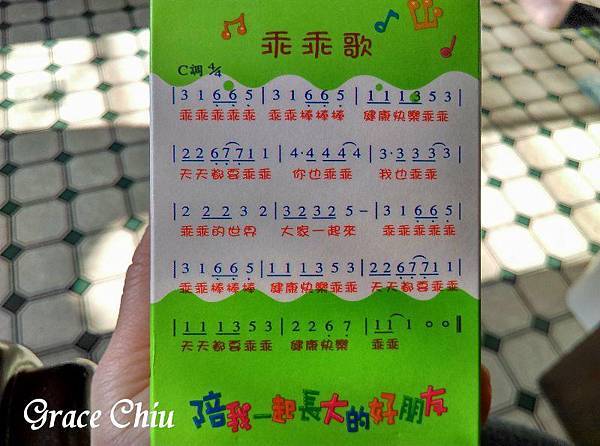 乖乖歌
C調 4/4
| 3 1 6 6 5 | 3 1 6 6 5 | 1 1 1 3 5 3 |
乖乖乖乖乖 乖乖棒棒棒 健康快樂乖乖
| 2 2 6 7 7 1 1 | 4· 4 4 4 4 | 3· 3 3 3 3 |
天天都要乖乖 你也乖乖 我也乖乖
| 2 2 2 3 2 | 3 2 3 2 5 – | 3 1 6 6 5 |
乖乖的世界 大家一起來 乖乖乖乖乖
| 3 1 6 6 5 | 1 1 1 3 5 3 | 2 2 6 7 7 1 1 |
乖乖棒棒棒 健康快樂乖乖 天天都要乖乖
| 1 1 1 3 5 3 | 2 2 6 7 | 1 1 1 o o ‖
天天都要乖乖 健康快樂 乖乖
陪我一起長大的好朋友
Grace Chiu